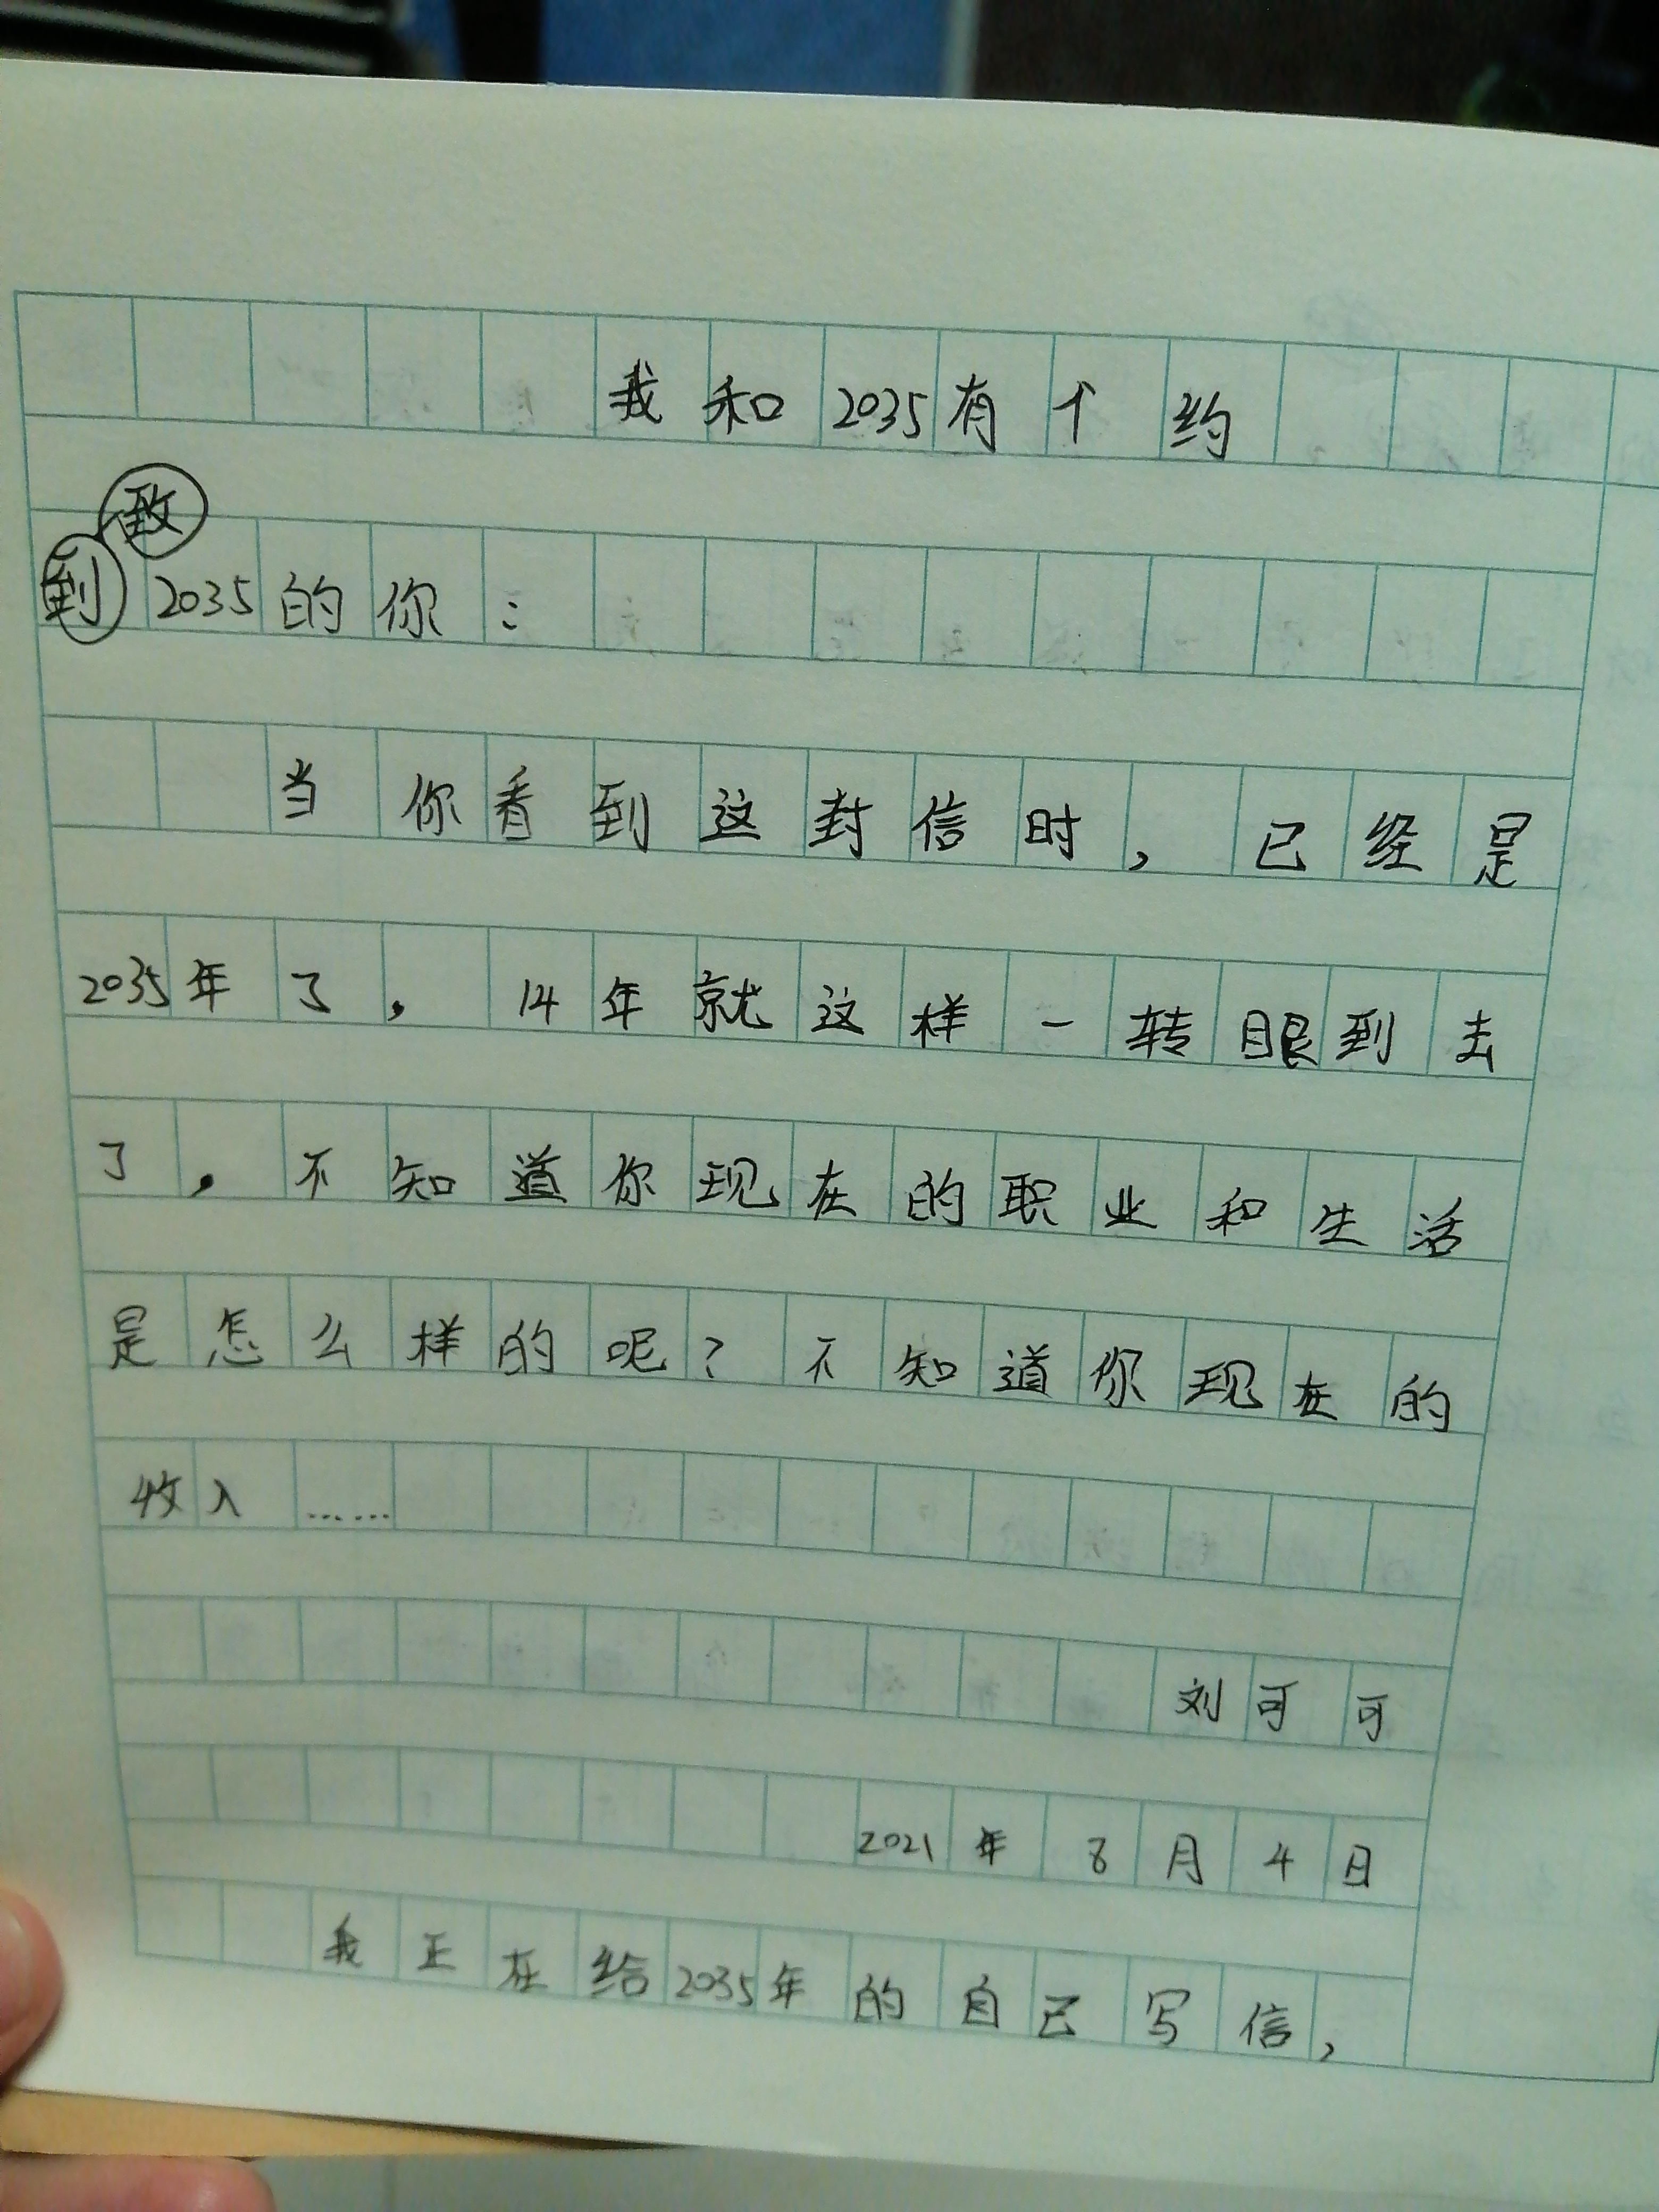 我和2035有个约
致
到2035的你：
当你看到这封信时，已经是
2035年了，14年就这样一转眼到去
了，不知道你现在的职业和生活
是怎么样的呢？不知道你现在的
收入……
刘可可
2021年8月4日
我正在给2035年的自己写信，